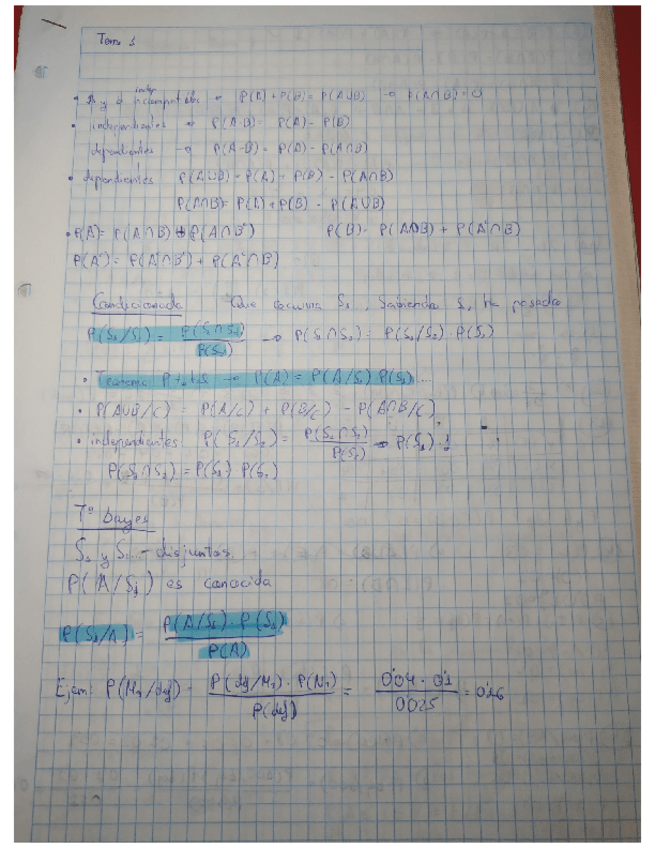 Tema 1
• A y B incompatibles → P(A) + P(B) = P(A∪B) → P(A∩B) = 0
• independientes → P(A-B) = P(A) - P(B)
dependientes → P(A-B) = P(A) - P(A∩B)
• dependientes P(A∪B) = P(A) + P(B) - P(A∩B)
P(A∩B) = P(A) + P(B) - P(A∪B)
• P(A) = P(A∩B) + P(A∩B') P(B) = P(A∩B) + P(A'∩B)
P(A') = P(A'∩B') + P(A'∩B)
Condicionada Que ocurra S₁, Sabiendo S₂ ha pasado
P(S₁/S₂) = P(S₁∩S₂) / P(S₂) → P(S₁∩S₂) = P(S₁/S₂) · P(S₂)
• Teorema P total → P(A) = P(A/S₁) P(S₁)...
• P(A∪B/C) = P(A/C) + P(B/C) - P(A∩B/C)
• independientes: P(S₁/S₂) = P(S₁∩S₂) / P(S₂) → P(S₁) · 1
P(S₁∩S₂) = P(S₁) · P(S₂)
Tº bayes
S₁ y S₂... - disjuntos.
P(A/S₁) es conocida
P(S₁/A) = P(A/S₁) · P(S₁) / P(A)
Ejem: P(M₁/def) = P(def/M₁) · P(M₁) / P(def) = 0'04 · 0'1 / 0'025 = 0'16